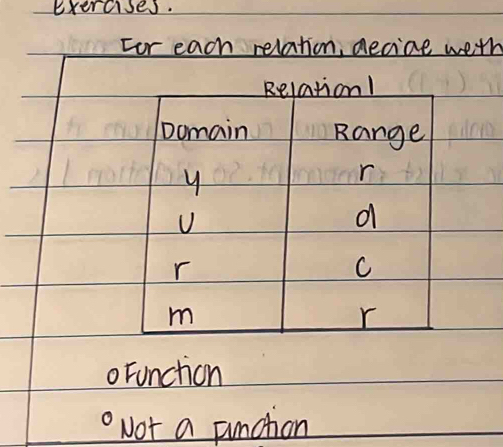 Exercises.
For each relation, decide weth
Relation 1
Domain Range
y r
u d
r c
m r
Function
Not a function